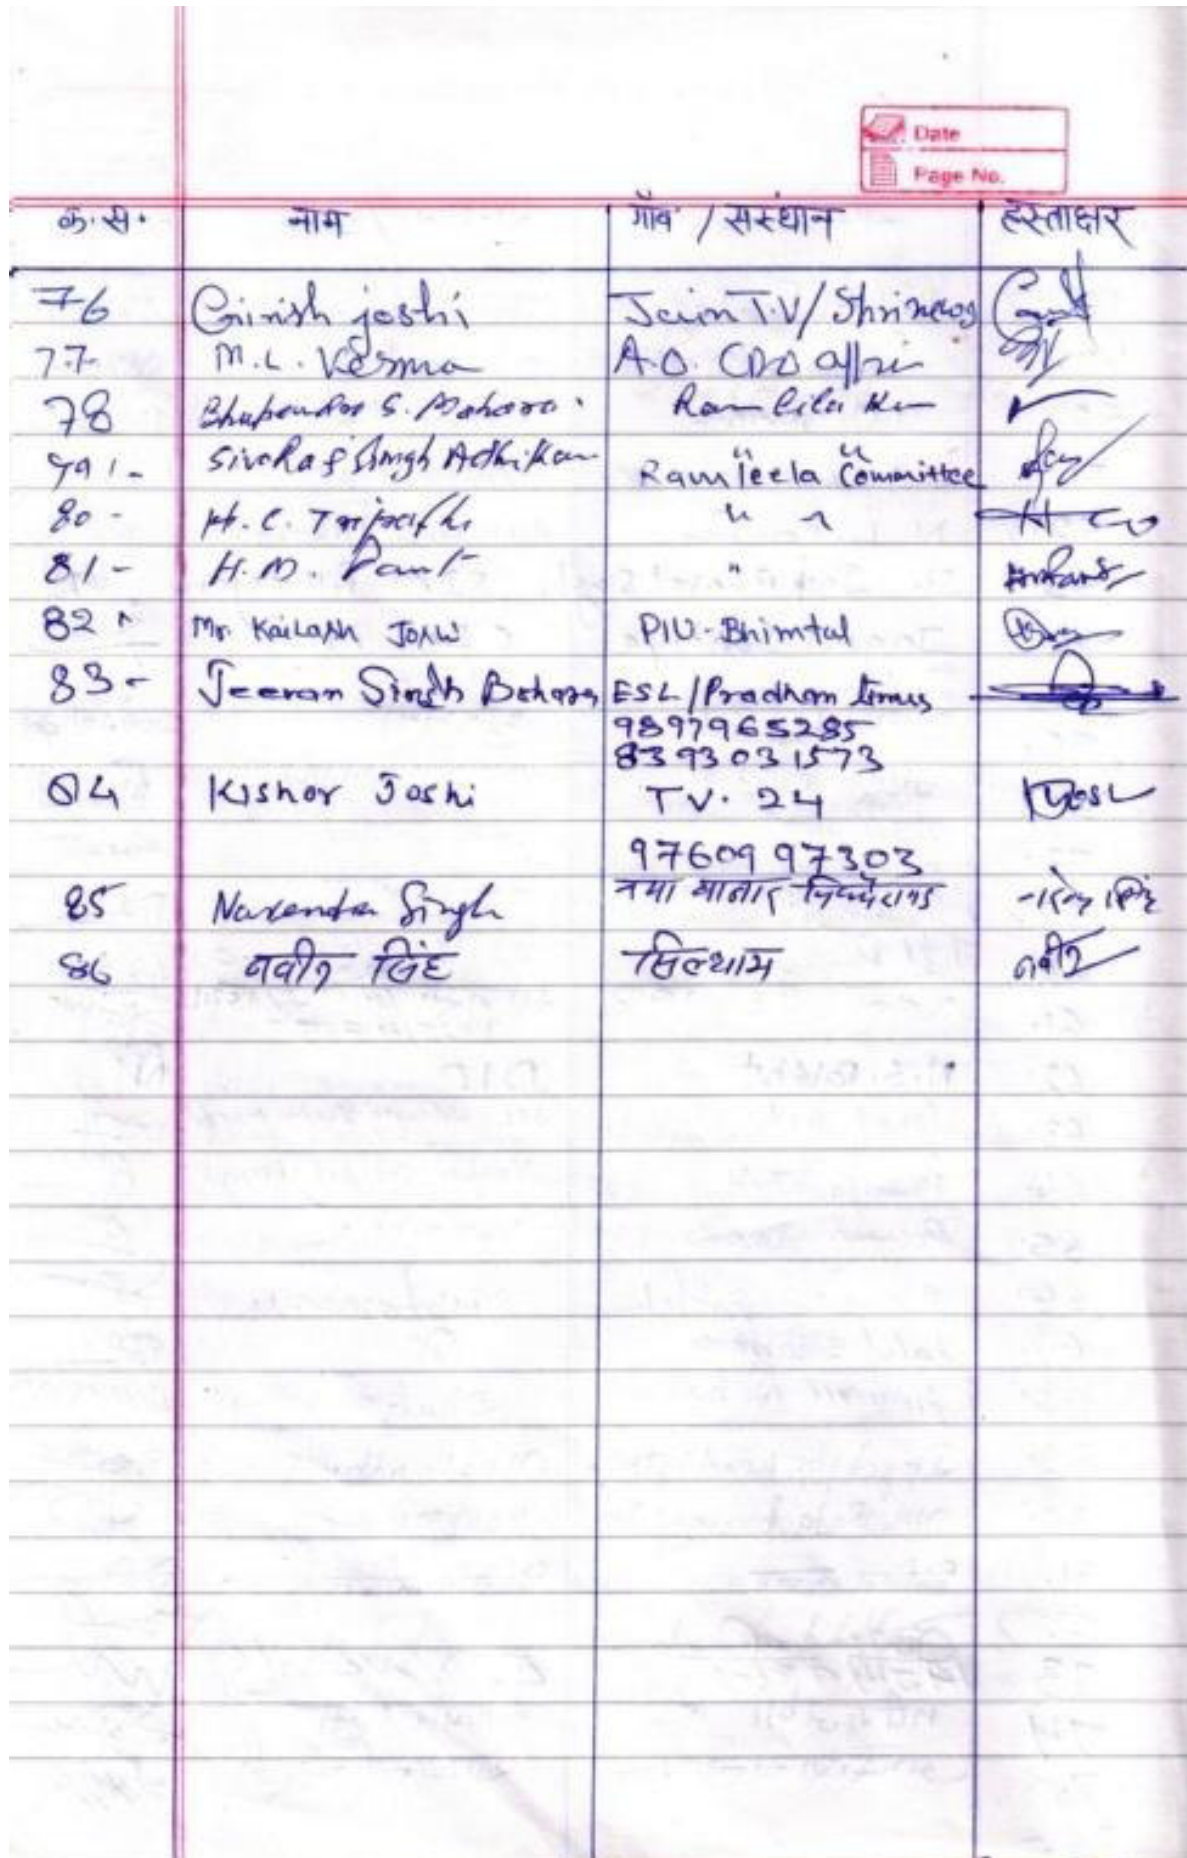 Date
Page No.
क.स. नाम गाँव / संस्थान हस्ताक्षर
76 Girish joshi Jain T.V/ Shrinews
77- M.L. Verma A.O. CDO office
78 Bhupender S. Mahara. Ram lila
791- Singh Adhikari Ramleela Committee
80- H.C. Tripathi " "
81- H.M. Pant "
82 Mr. Kailash Joshi PIU-Bhimtal
83- Jeevan Singh Bohara ESL/Pradhan times
9897965285
8393031573
84 Kishor Joshi TV. 24
97609 97303
85 Narendra Singh नया बाजार नरेन्द्र सिंह
86 नवीन सिंह सिल्थाम नवीन